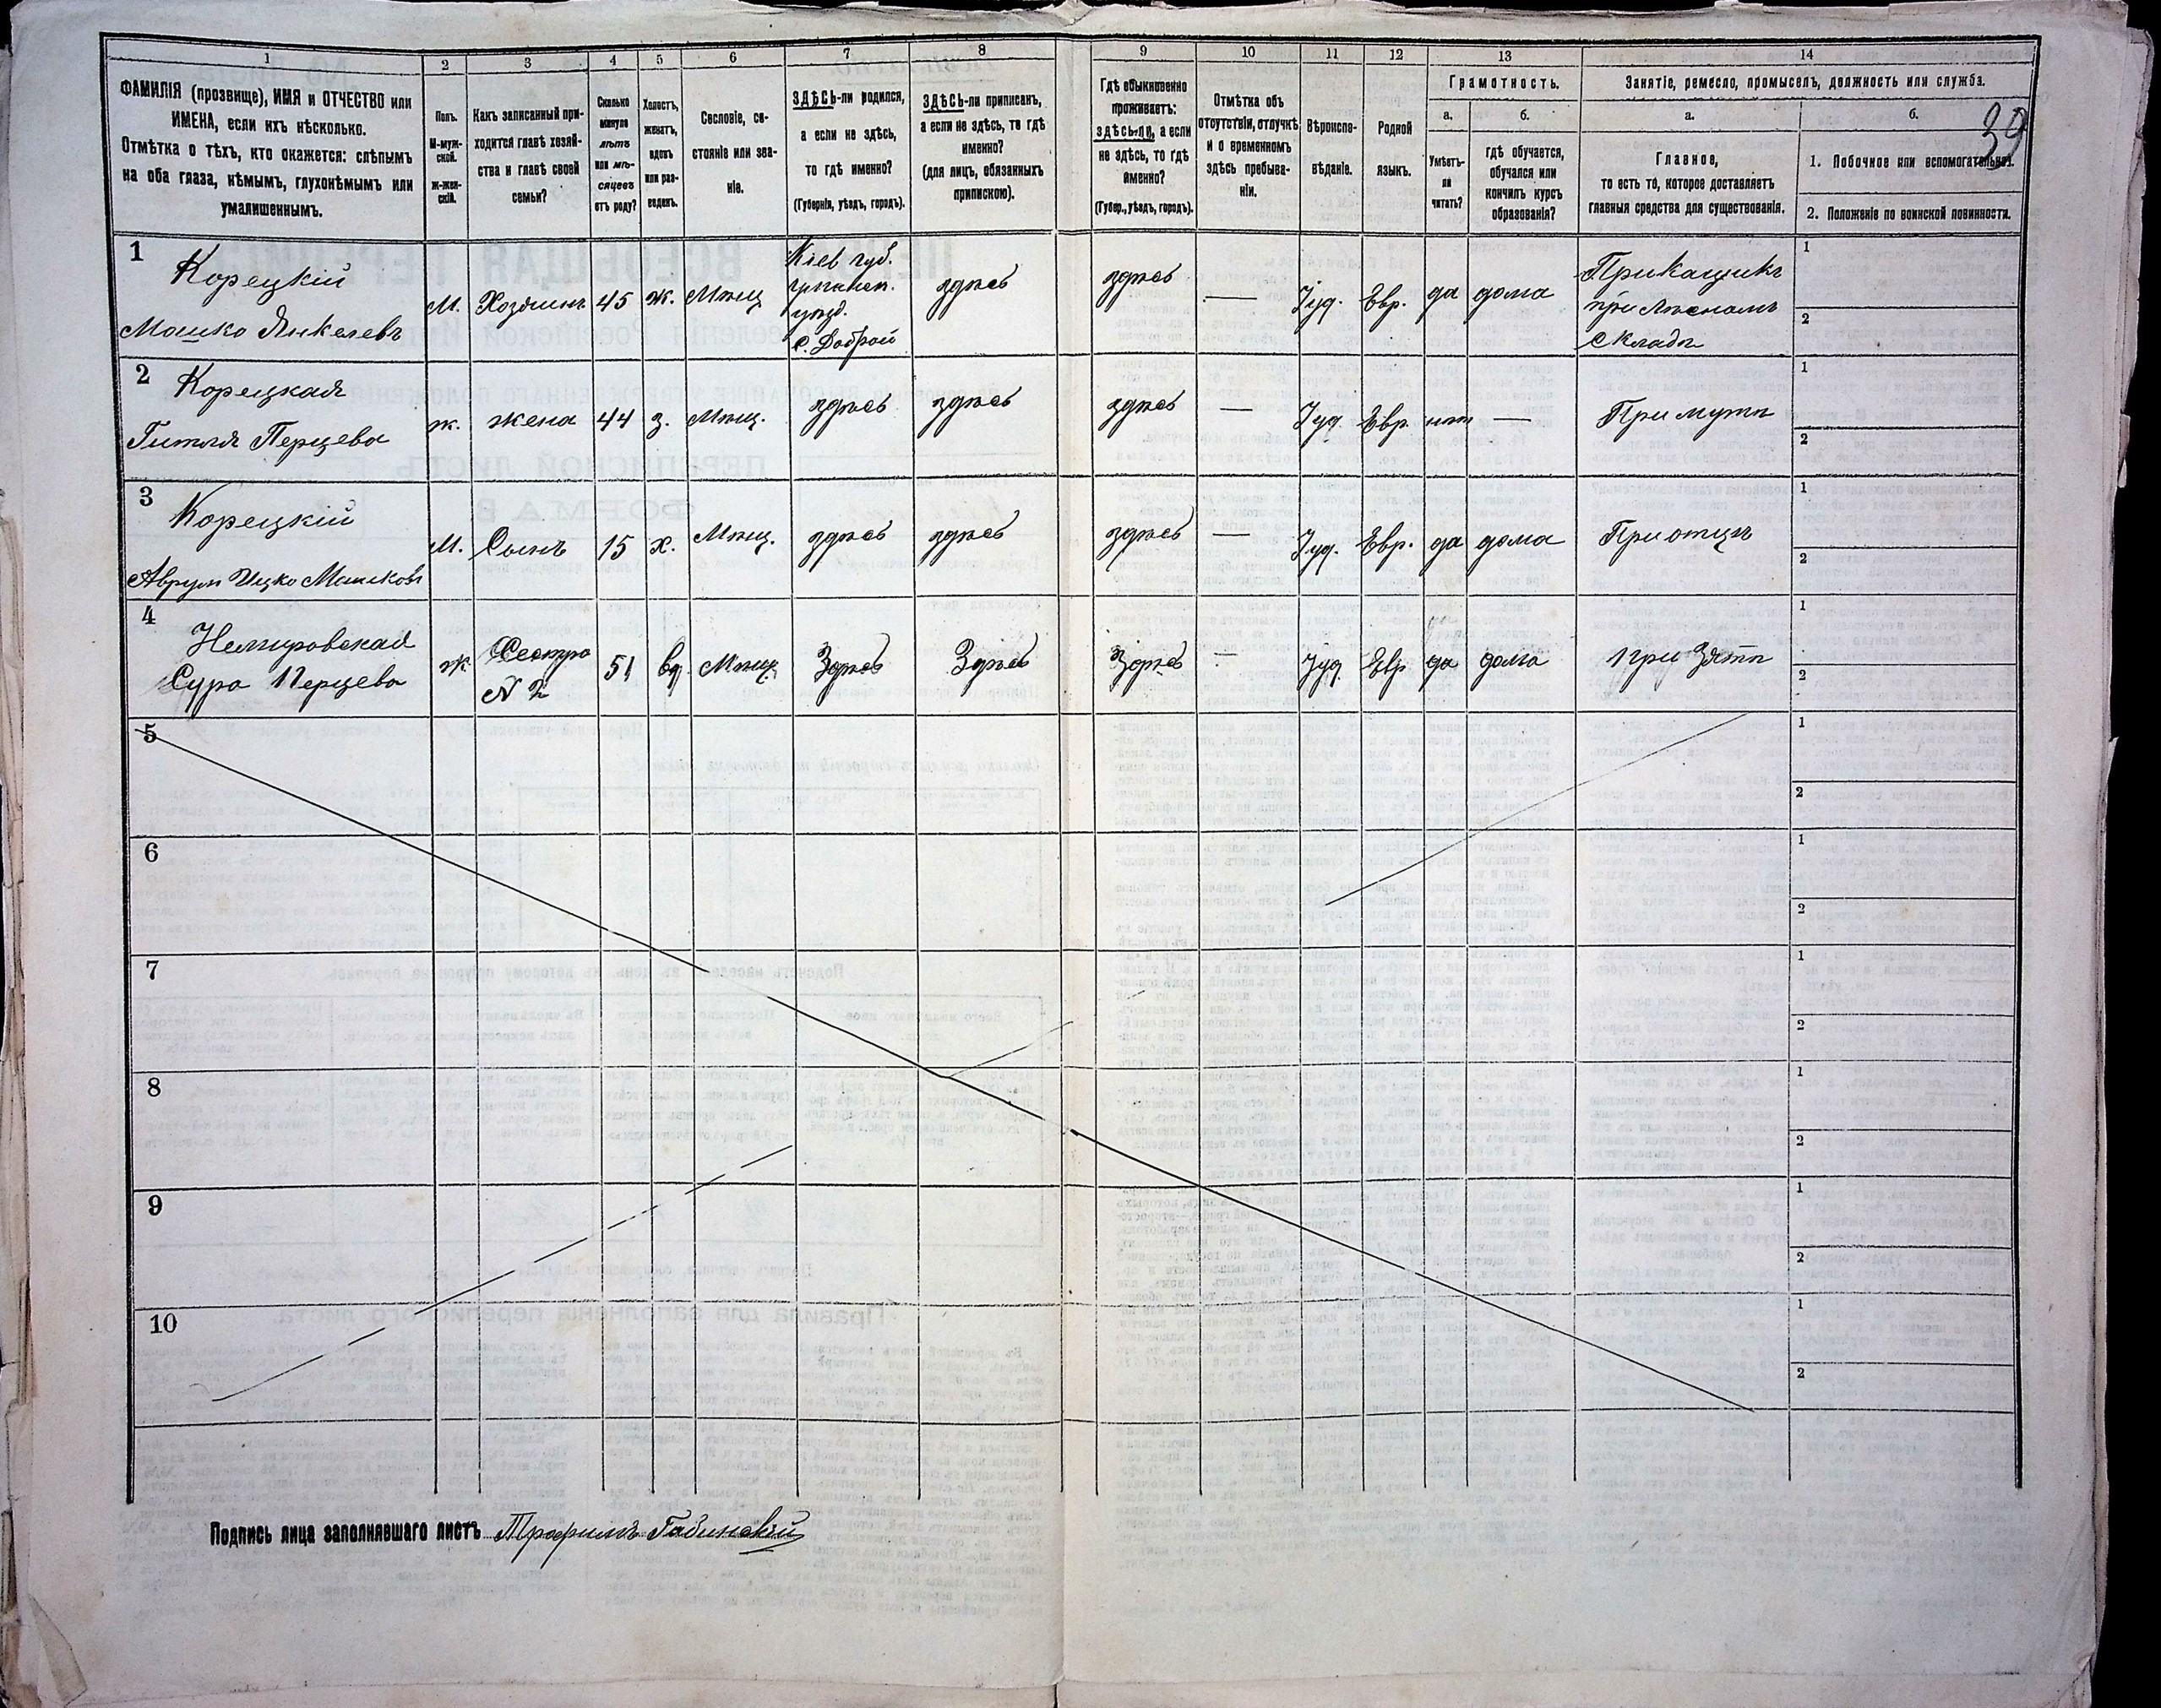 1 2 3 4 5 6 7 8 9 10 11 12 13 14
ФАМИЛІЯ (прозвище), ИМЯ и ОТЧЕСТВО или
ИМЕНА, если ихъ нѣсколько.
Отмѣтка о тѣхъ, кто окажется: слѣпымъ
на оба глаза, нѣмымъ, глухонѣмымъ или
умалишеннымъ.
Полъ.
М-муж-
ской.
ж-жен-
скій.
Какъ записанный при-
ходится главѣ хозяй-
ства и главѣ своей
семьи?
Сколько
минуло
лѣтъ
или мѣ-
сяцевъ
отъ роду?
Холостъ,
женатъ,
вдовъ
или раз-
веденъ.
Сословіе, со-
стояніе или зва-
ніе.
ЗДѢСЬ-ли родился,
а если не здѣсь,
то гдѣ именно?
(Губернія, уѣздъ, городъ).
ЗДѢСЬ-ли приписанъ,
а если не здѣсь, то гдѣ
именно?
(для лицъ, обязанныхъ
припискою).
Гдѣ обыкновенно
проживаетъ:
здѣсь-ли, а если
не здѣсь, то гдѣ
именно?
(Губер., уѣздъ, городъ).
Отмѣтка объ
отсутствіи, отлучкѣ
и о временномъ
здѣсь пребыва-
ніи.
Вѣроиспо-
вѣданіе.
Родной
языкъ.
Грамотность.
а.
Умѣетъ-
ли
читать?
б.
гдѣ обучается,
обучался или
кончилъ курсъ
образованія?
Занятіе, ремесло, промыселъ, должность или служба.
а.
Главное,
то есть то, которое доставляетъ
главныя средства для существованія.
б.
39
1. Побочное или вспомогательное.
2. Положеніе по воинской повинности.
1
Корецкій
Мошко Янкелевъ
М. Хозяинъ 45 ж. Мѣщ
Кіев губ.
уѣзд.
с. Доброй
здѣсь
здѣсь — Іуд. Евр. да дома
Прикащикъ
при лѣсномъ
складѣ
1
2
2
Корецкая
Гитля Перцева
ж. жена 44 з. Мѣщ. здѣсь здѣсь здѣсь — Іуд. Евр. нѣт — При мужѣ
1
2
3
Корецкій
Аврум Ицко Мошковъ
М. Сынъ 15 х. Мѣщ. здѣсь здѣсь здѣсь — Іуд. Евр. да дома При отцѣ
1
2
4
Немировская
Сура Перцева
ж. Сестра
N 2
51 вд. Мѣщ. Здѣсь Здѣсь Здѣсь — Іуд. Евр да дома При Зятѣ
1
2
5
1
2
6
1
2
7
1
2
8
1
2
9
1
2
10
1
2
Подпись лица заполнявшаго листъ Трофимъ Габинскій